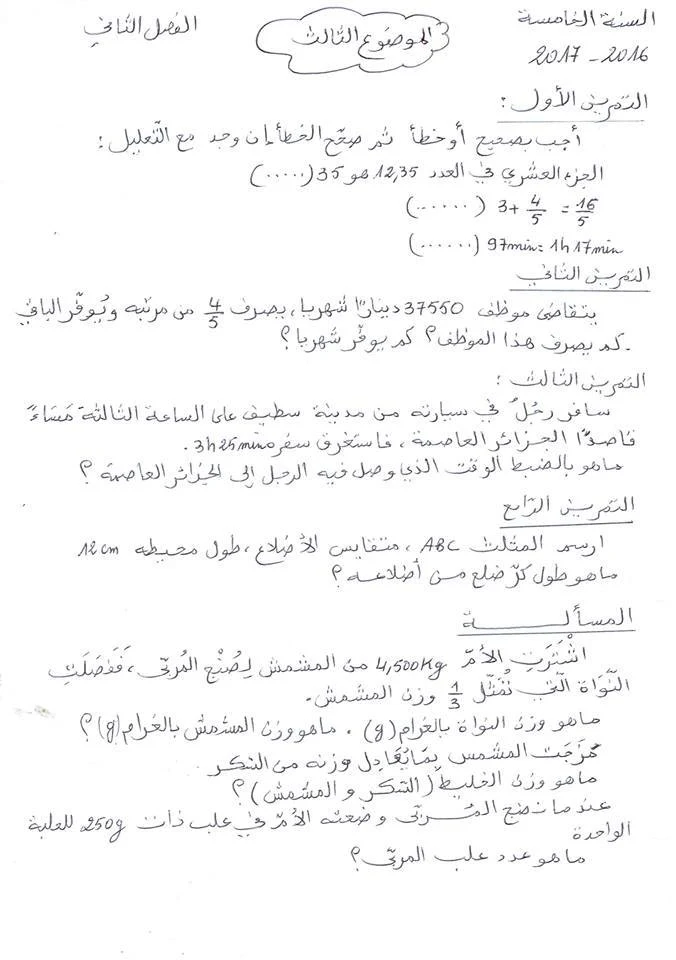 السنة الخامسة
2016 - 2017
الموضوع الثالث
الفصل الثاني
التمرين الأول :
أجب بصحيح أو خطأ ثم صحّح الخطأ إن وجد مع التّعليل :
الجزء العشري في العدد 12,35 هو 35 (.....)
3 + 4/5 = 16/5 (......)
97min = 1h 17min (......)
التمرين الثاني
يتقاضى موظف 37550 دينارًا شهريا، يصرف 4/5 من مرتبه ويُوفّر الباقي
. كم يصرف هذا الموظف؟ كم يوفّر شهريا؟
التمرين الثالث :
سافر رجُلٌ في سيارته من مدينة سطيف على الساعة الثالثة مَسَاءً
قاصدًا الجزائر العاصمة، فاستغرق سفره 3h25min.
ماهو بالضبط الوقت الذي وصل فيه الرجل إلى الجزائر العاصمة ؟
التمرين الرابع
ارسم المثلث ABC ، متقايس الأضلاع، طول محيطه 12cm
ماهو طول كلّ ضلع من أضلاعه ؟
المسألــــــة
اشْتَرَتِ الأمّ 4,500Kg من المشمش لِصُنْعِ المُربّى، فَفَصَلَتِ
النَّوَاةَ الّتي تُمَثّل 1/3 وزن المشمش.
ماهو وزن النواة بالغرام (g) . ماهو وزن المشمش بالغرام (g) ؟
مَزَجَت المشمس بِمَا يُعَادِل وزنه من السّكر.
ماهو وزن الخليط (السّكر و المشمش) ؟
عندما نضج المُــربّى وضعته الأمّ في علب ذات 250g للعلبة
الواحدة
ماهو عدد علب المربّى ؟